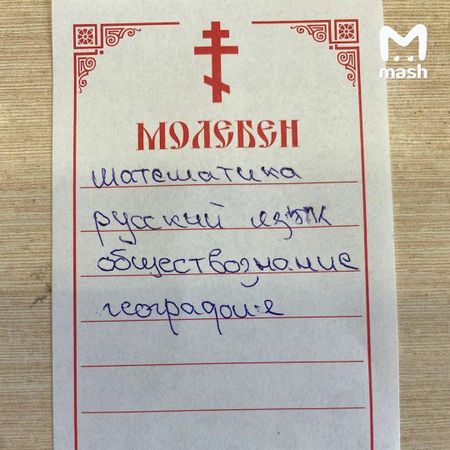 mash
МОЛЕБЕН
математика
русский язык
обществознание